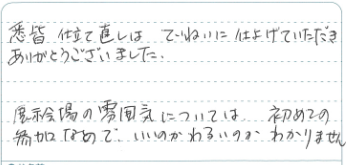 悉皆 仕立て直しは ていねいに 仕上げていただき
ありがとうございました。
展示会場の雰囲気については 初めての
参加なめで いいのかわるいのか わかりません